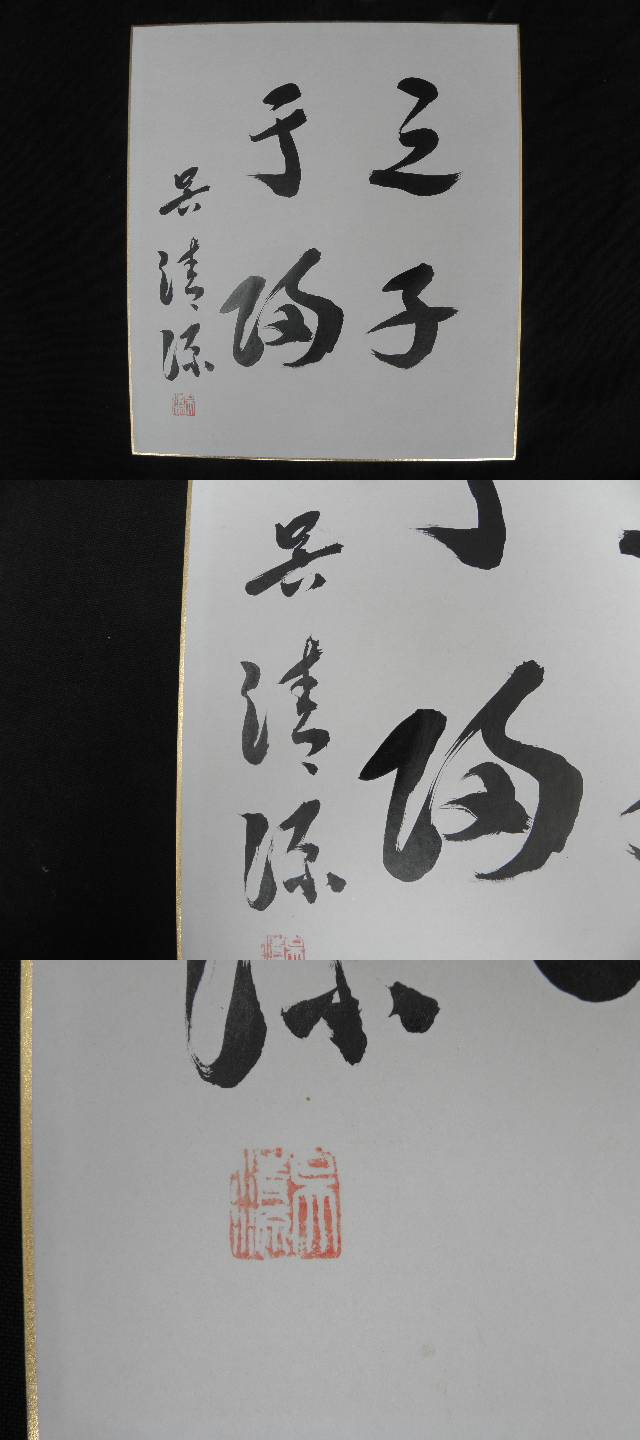 之子
于帰
呉清源
呉清源